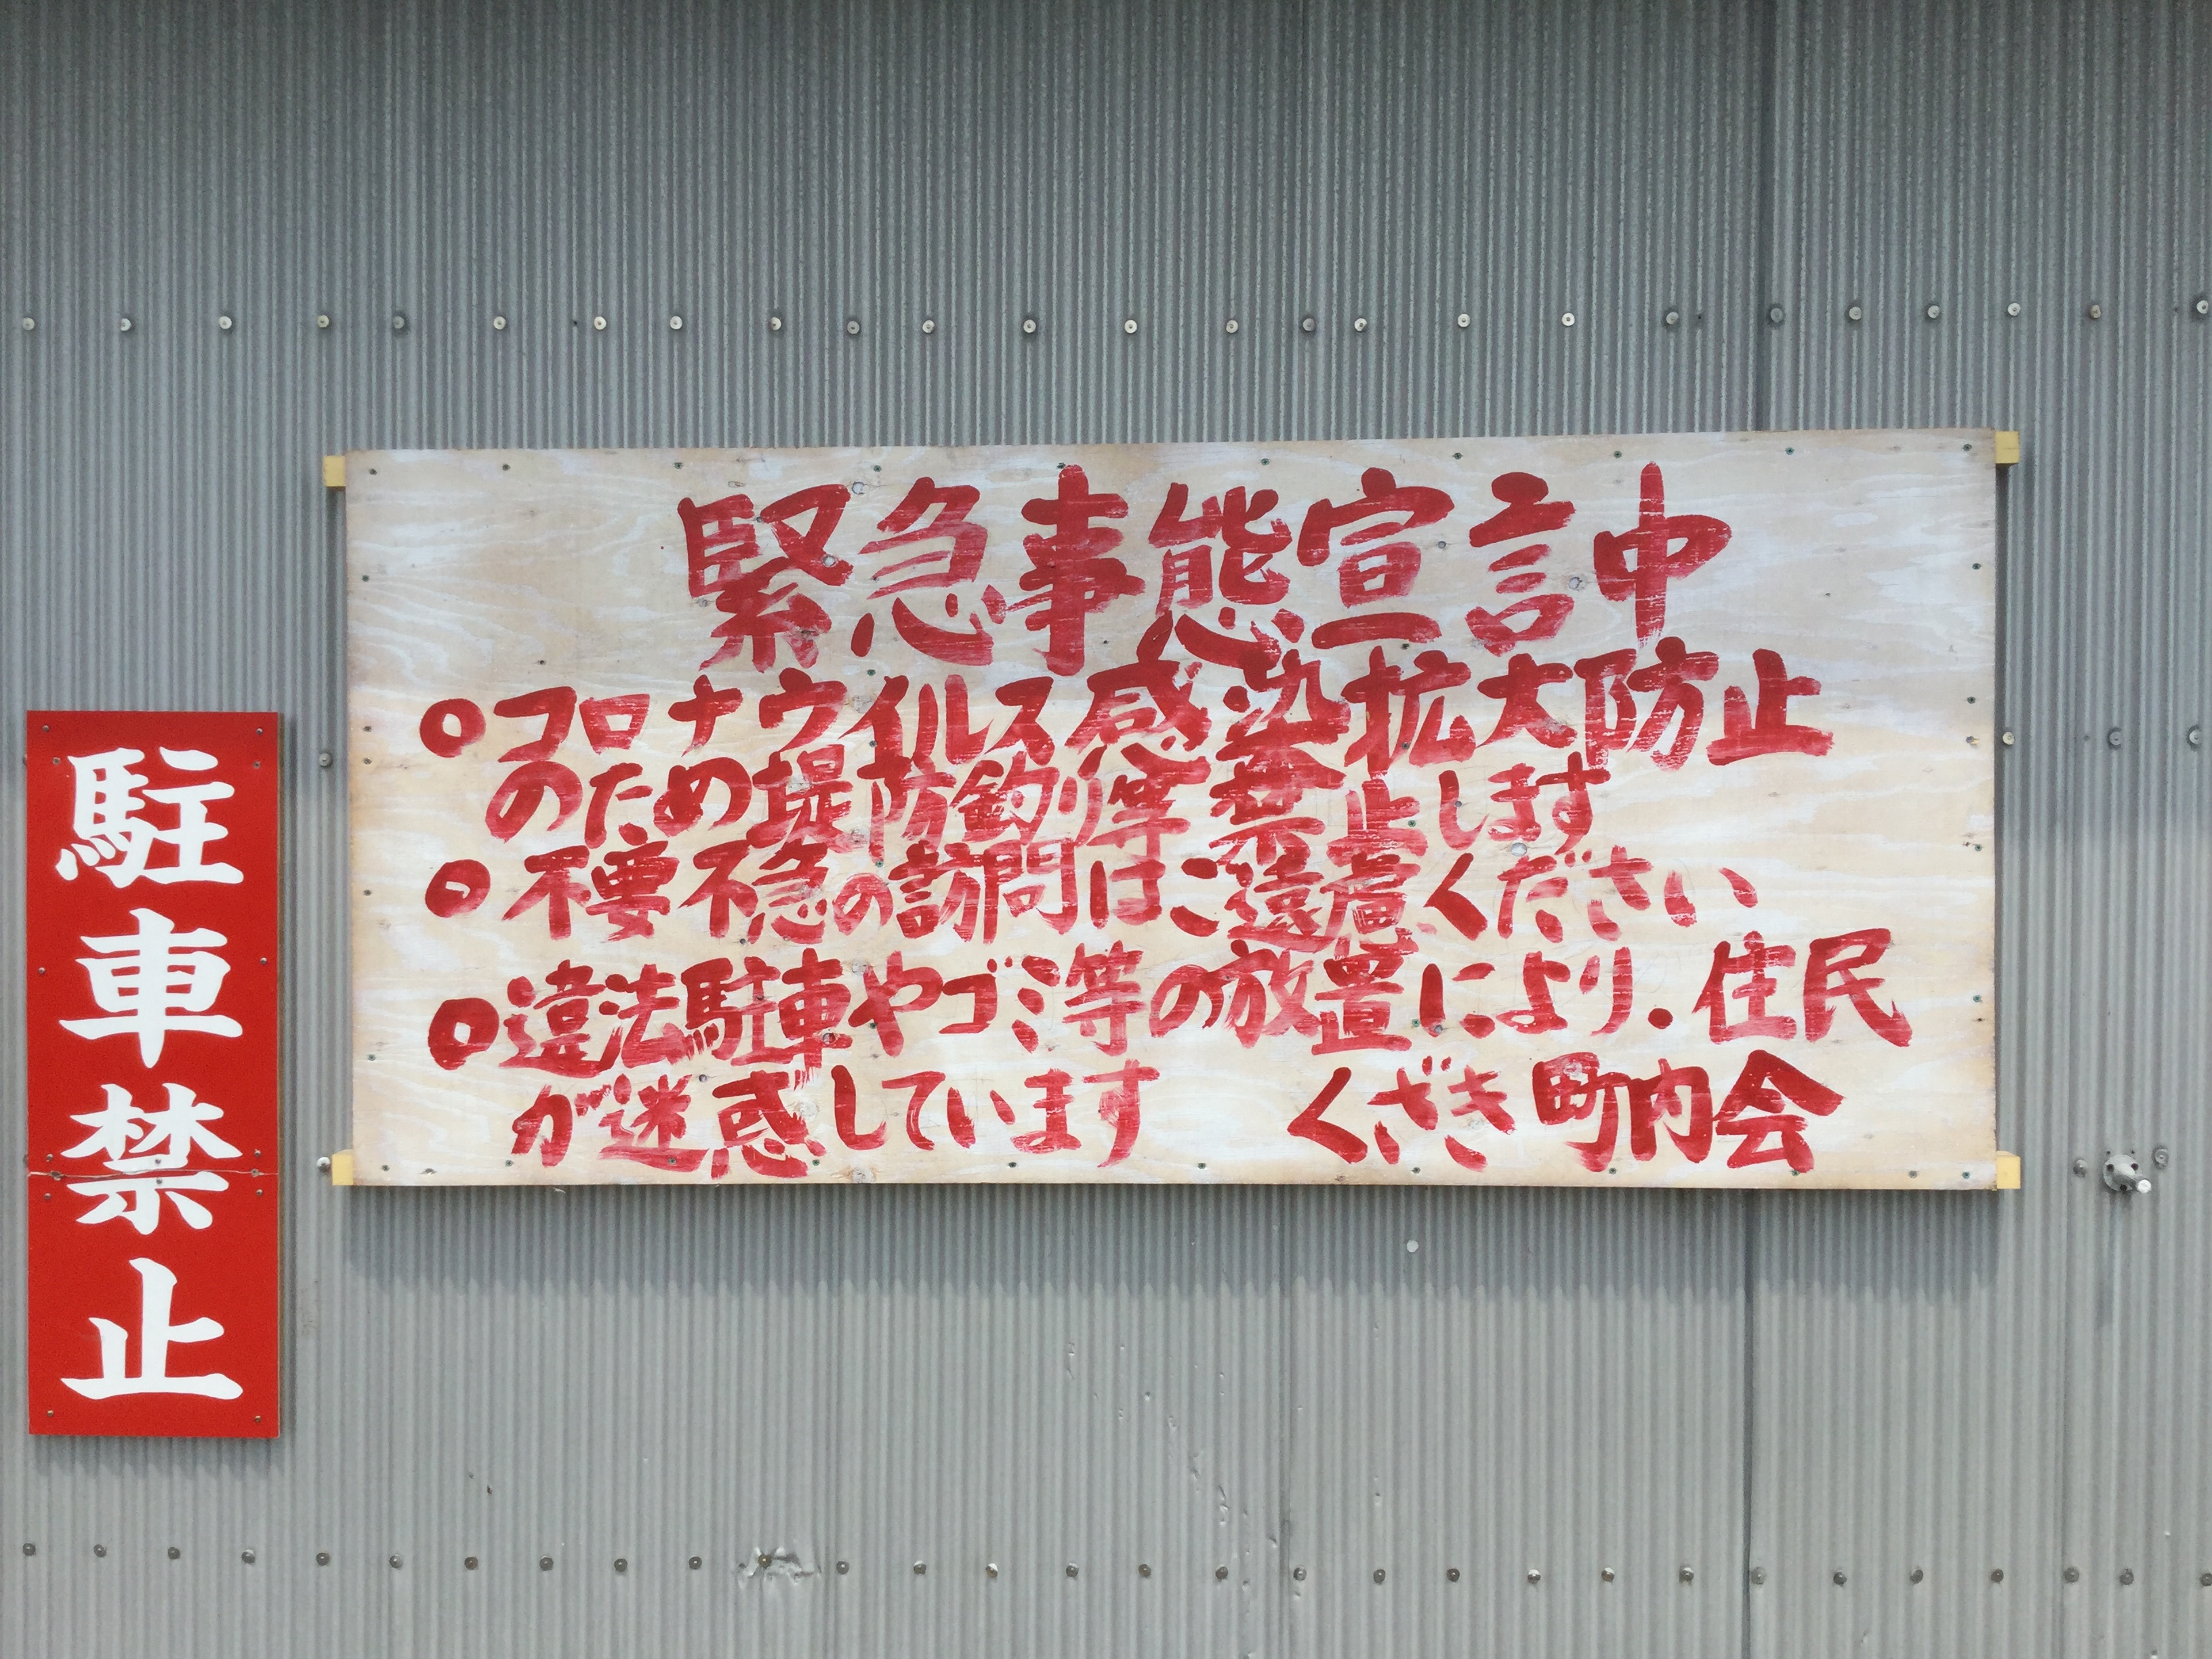 駐車禁止
緊急事態宣言中
○コロナウイルス感染拡大防止
のため堤防釣り等禁止します
○不要不急の訪問はご遠慮ください
○違法駐車やゴミ等の放置により.住民
が迷惑しています くざき町内会